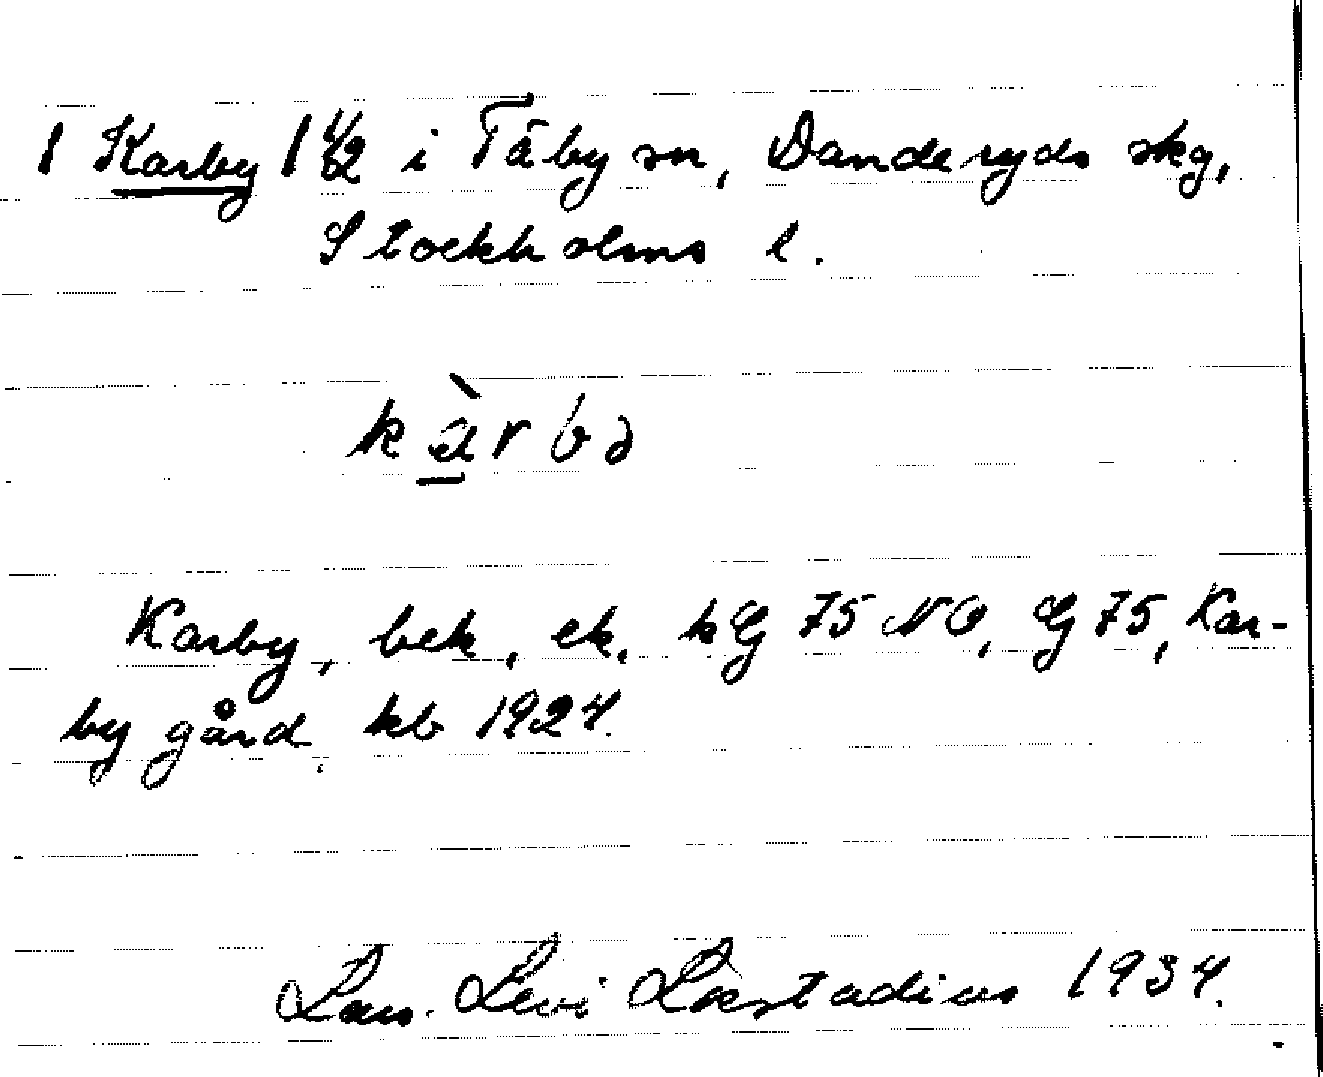 1 Karby 1 1/2 i Täby sn, Danderyds skg,
Stockholms l.
kàrbə
Karby, bek, ek. kG 75 NO, G 75, Kar-
by gård, kb 1924.
Lars. Levi Læstadius 1934.